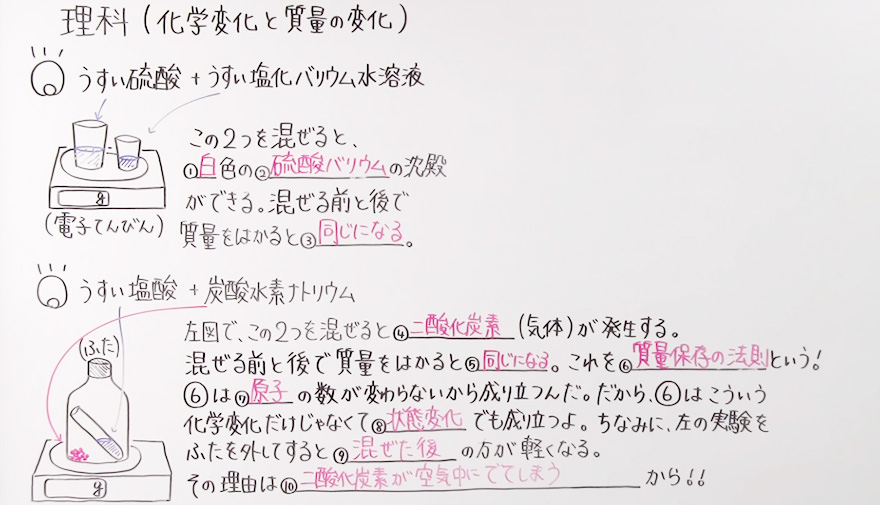 理科(化学変化と質量の変化)
うすい硫酸 + うすい塩化バリウム水溶液
この2つを混ぜると、
①白色の②硫酸バリウムの沈殿
ができる。混ぜる前と後で
質量をはかると③同じになる。
g
(電子てんびん)
うすい塩酸 + 炭酸水素ナトリウム
(ふた)
左図で、この2つを混ぜると④二酸化炭素(気体)が発生する。
混ぜる前と後で質量をはかると⑤同じになる。これを⑥質量保存の法則という!
⑥は⑦原子の数が変わらないから成り立つんだ。だから、⑥はこういう
化学変化だけじゃなくて⑧状態変化でも成り立つよ。ちなみに、左の実験を
ふたを外してすると⑨混ぜた後の方が軽くなる。
その理由は⑩二酸化炭素が空気中にでてしまうから!!
g